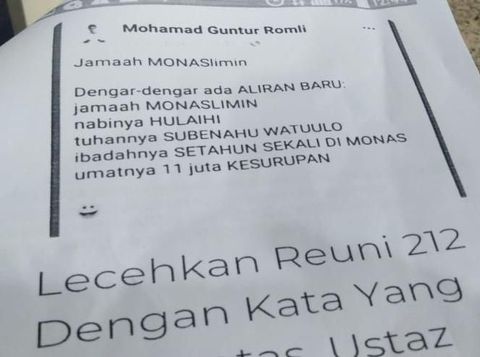 Mohamad Guntur Romli
Jamaah MONASlimin
Dengar-dengar ada ALIRAN BARU:
jamaah MONASLIMIN
nabinya HULAIHI
tuhannya SUBENAHU WATUULO
ibadahnya SETAHUN SEKALI DI MONAS
umatnya 11 juta KESURUPAN
Lecehkan Reuni 212
Dengan Kata Yang
Ustaz